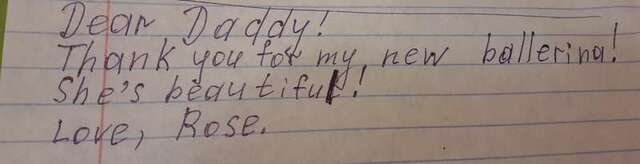 Dear Daddy!
Thank you for my new ballerina!
She's beautiful!
Love, Rose.